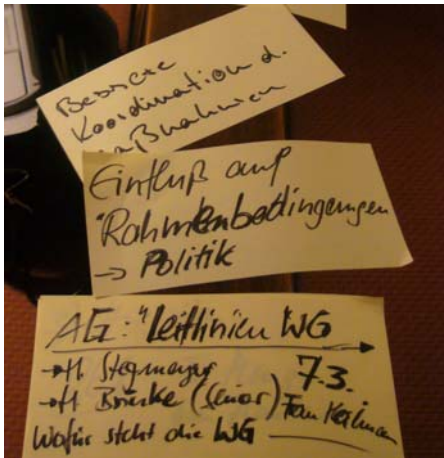 Bessere
Koordination d.
Maßnahmen
Einfluß auf
"Rahmenbedingungen
→ Politik
AG: "Leitlinien WG
→ H. Stegmeyer 7.3.
→ H. Brinke (Senior) Frau
Wofür steht die WG